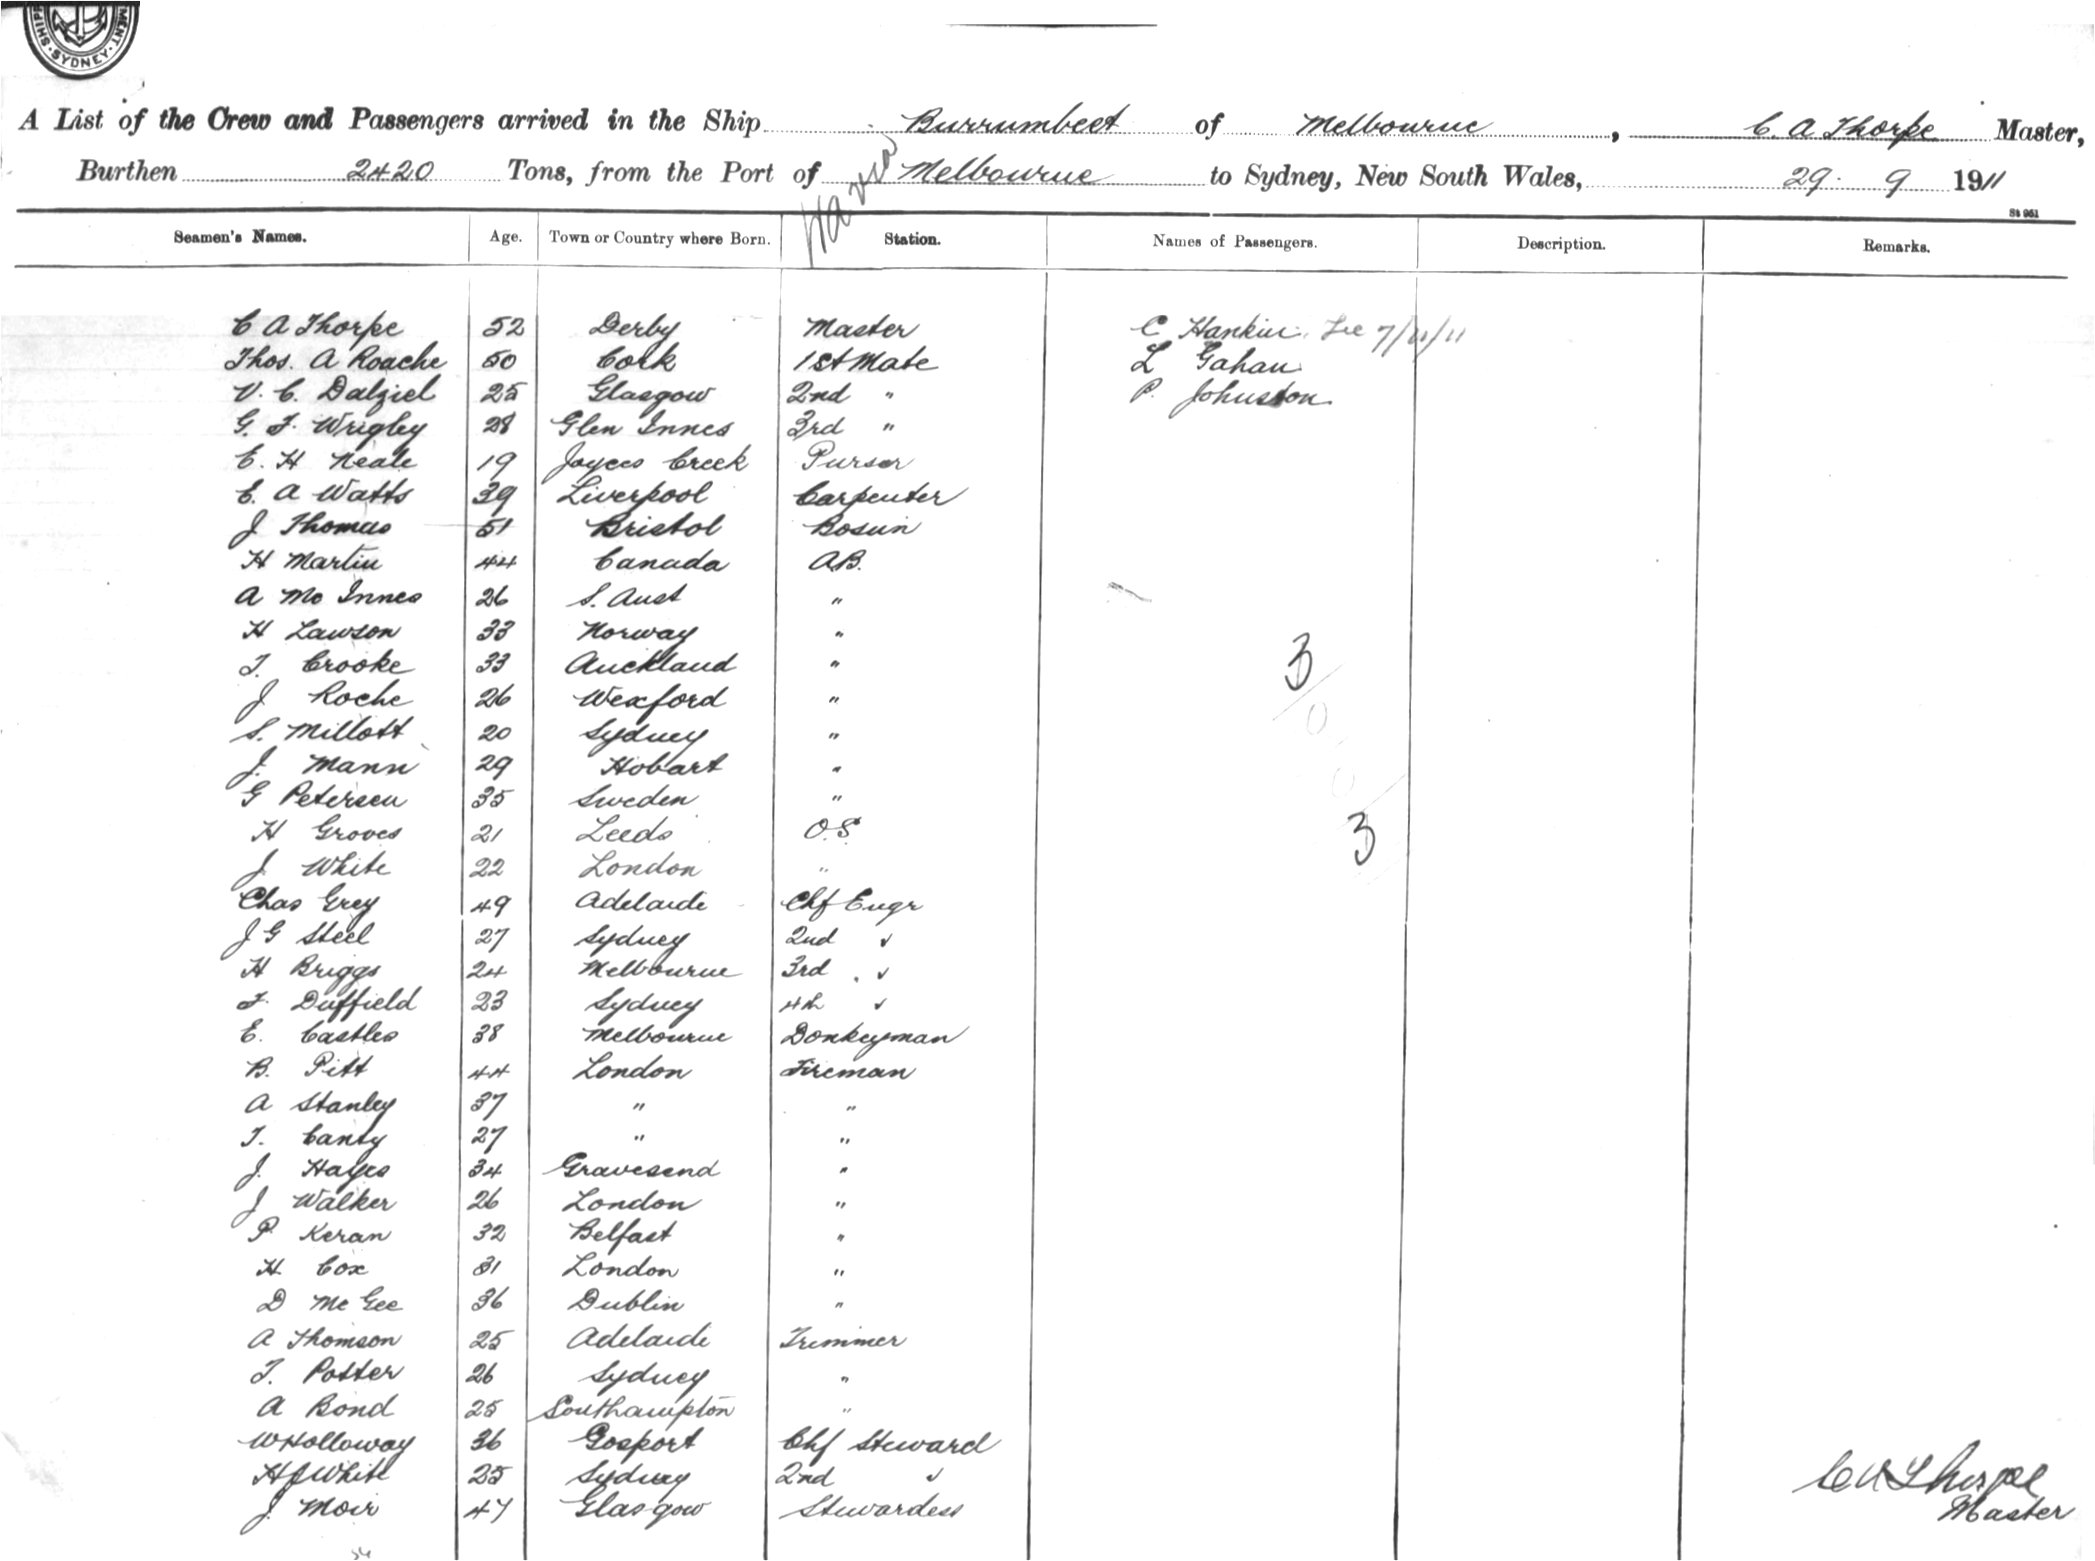 SHIPP MENT · SYDNEY ·
A List of the Crew and Passengers arrived in the Ship Burrumbeet of Melbourne, C. A Thorpe Master,
Burthen 2420 Tons, from the Port of Melbourne to Sydney, New South Wales, 29. 9 1911
St 961
Seamen's Names. Age. Town or Country where Born. Station. Names of Passengers. Description. Remarks.
C A Thorpe 52 Derby Master C Hankin 7/11/11
Thos. A Roache 50 Cork 1st Mate L Gahan
V. C. Dalziel 25 Glasgow 2nd " P. Johnston
G. F. Wrigley 28 Glen Innes 3rd "
E. H Neale 19 Joyces Creek Purser
E. A Watts 39 Liverpool Carpenter
J Thomas 51 Bristol Bosun
H Martin 44 Canada A.B.
A Mc Innes 26 S. Aust "
H Lawson 33 Norway "
T. Crooke 33 Auckland "
J Roche 26 Wexford "
S. Millott 20 Sydney "
J. Mann 29 Hobart "
G Petersen 35 Sweden "
H Groves 21 Leeds O.S.
J White 22 London "
Chas Grey 49 Adelaide Chf Engr
J G Steel 27 Sydney 2nd "
H Briggs 24 Melbourne 3rd "
F. Duffield 23 Sydney 4th "
E. Castles 38 Melbourne Donkeyman
B. Pitt 44 London Fireman
A Stanley 37 " "
T. Canty 27 " "
J. Hayes 34 Gravesend "
J Walker 26 London "
P. Keran 32 Belfast "
H Cox 31 London "
D McGee 36 Dublin "
A Thomson 25 Adelaide Trimmer
T. Potter 26 Sydney "
A Bond 25 Southampton "
W Holloway 36 Gosport Chf Steward
H J White 25 Sydney 2nd "
J. Moir 47 Glasgow Stewardess
3
3
C A Thorpe
Master